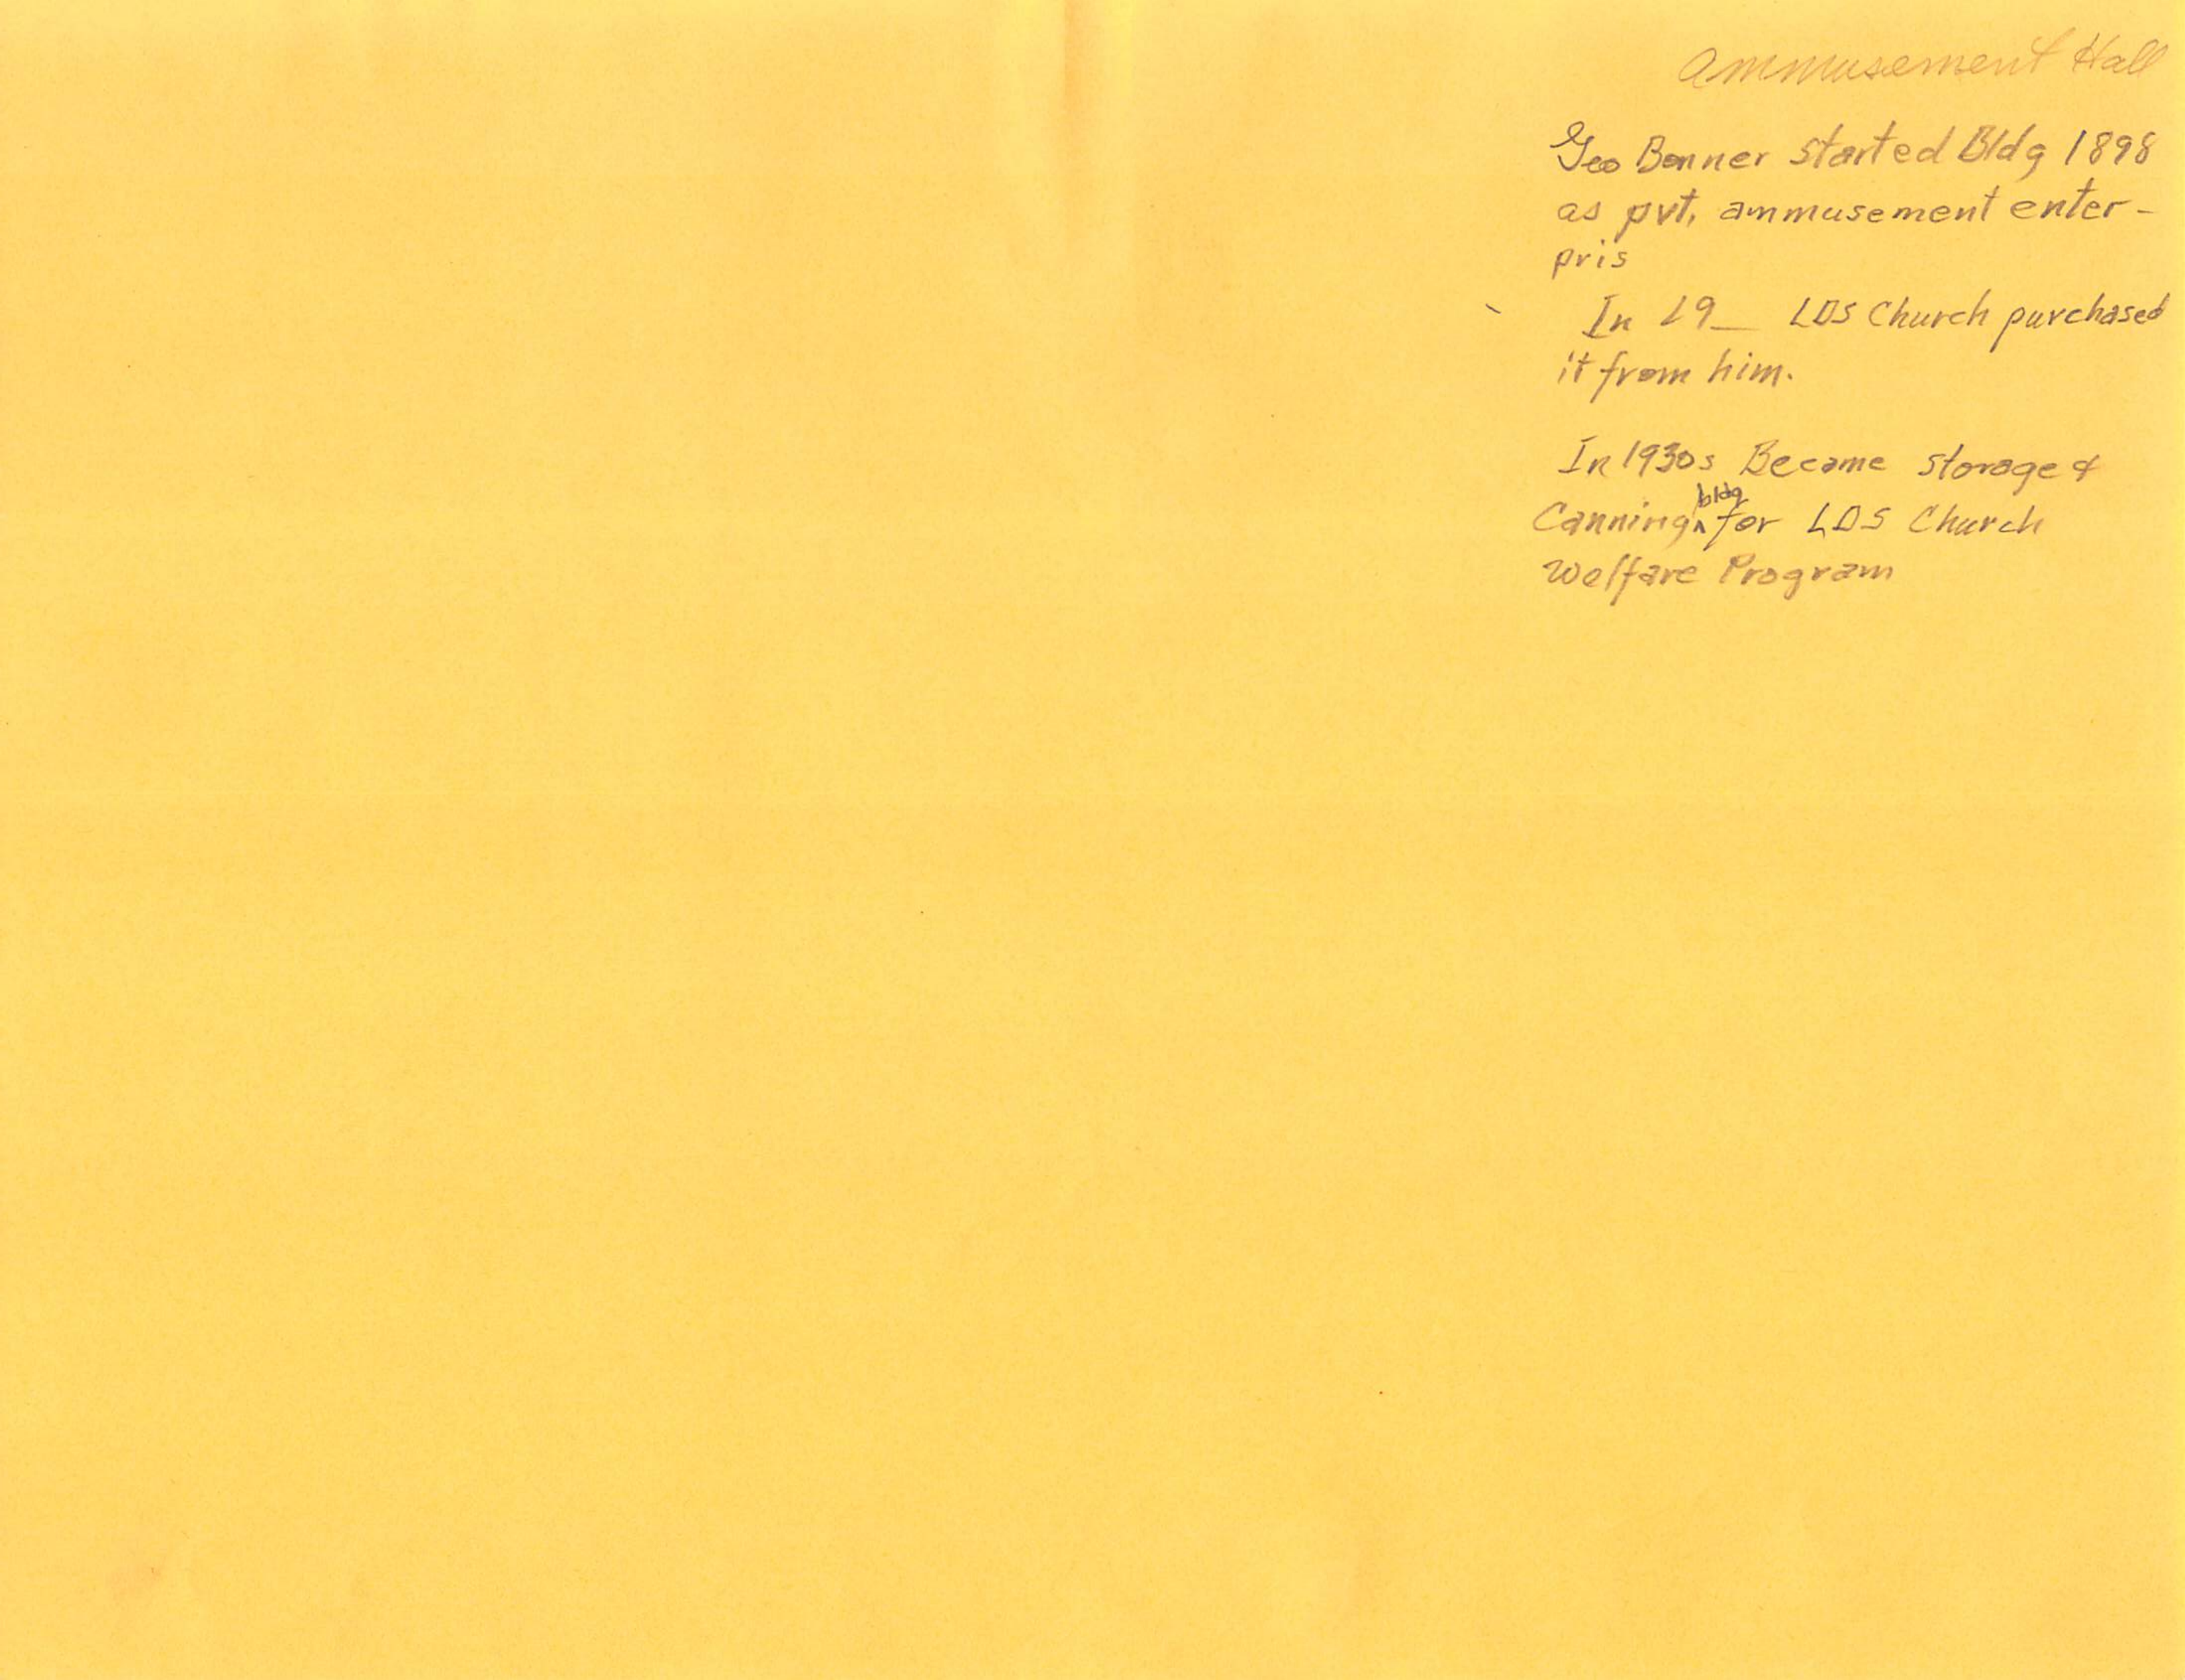 Ammusement Hall
Geo Bonner started Bldg 1898
as pvt. ammusement enter-
pris
In 19__ LDS Church purchased
it from him.
In 1930s Became storage &
Canning ^bldg for LDS Church
Welfare Program